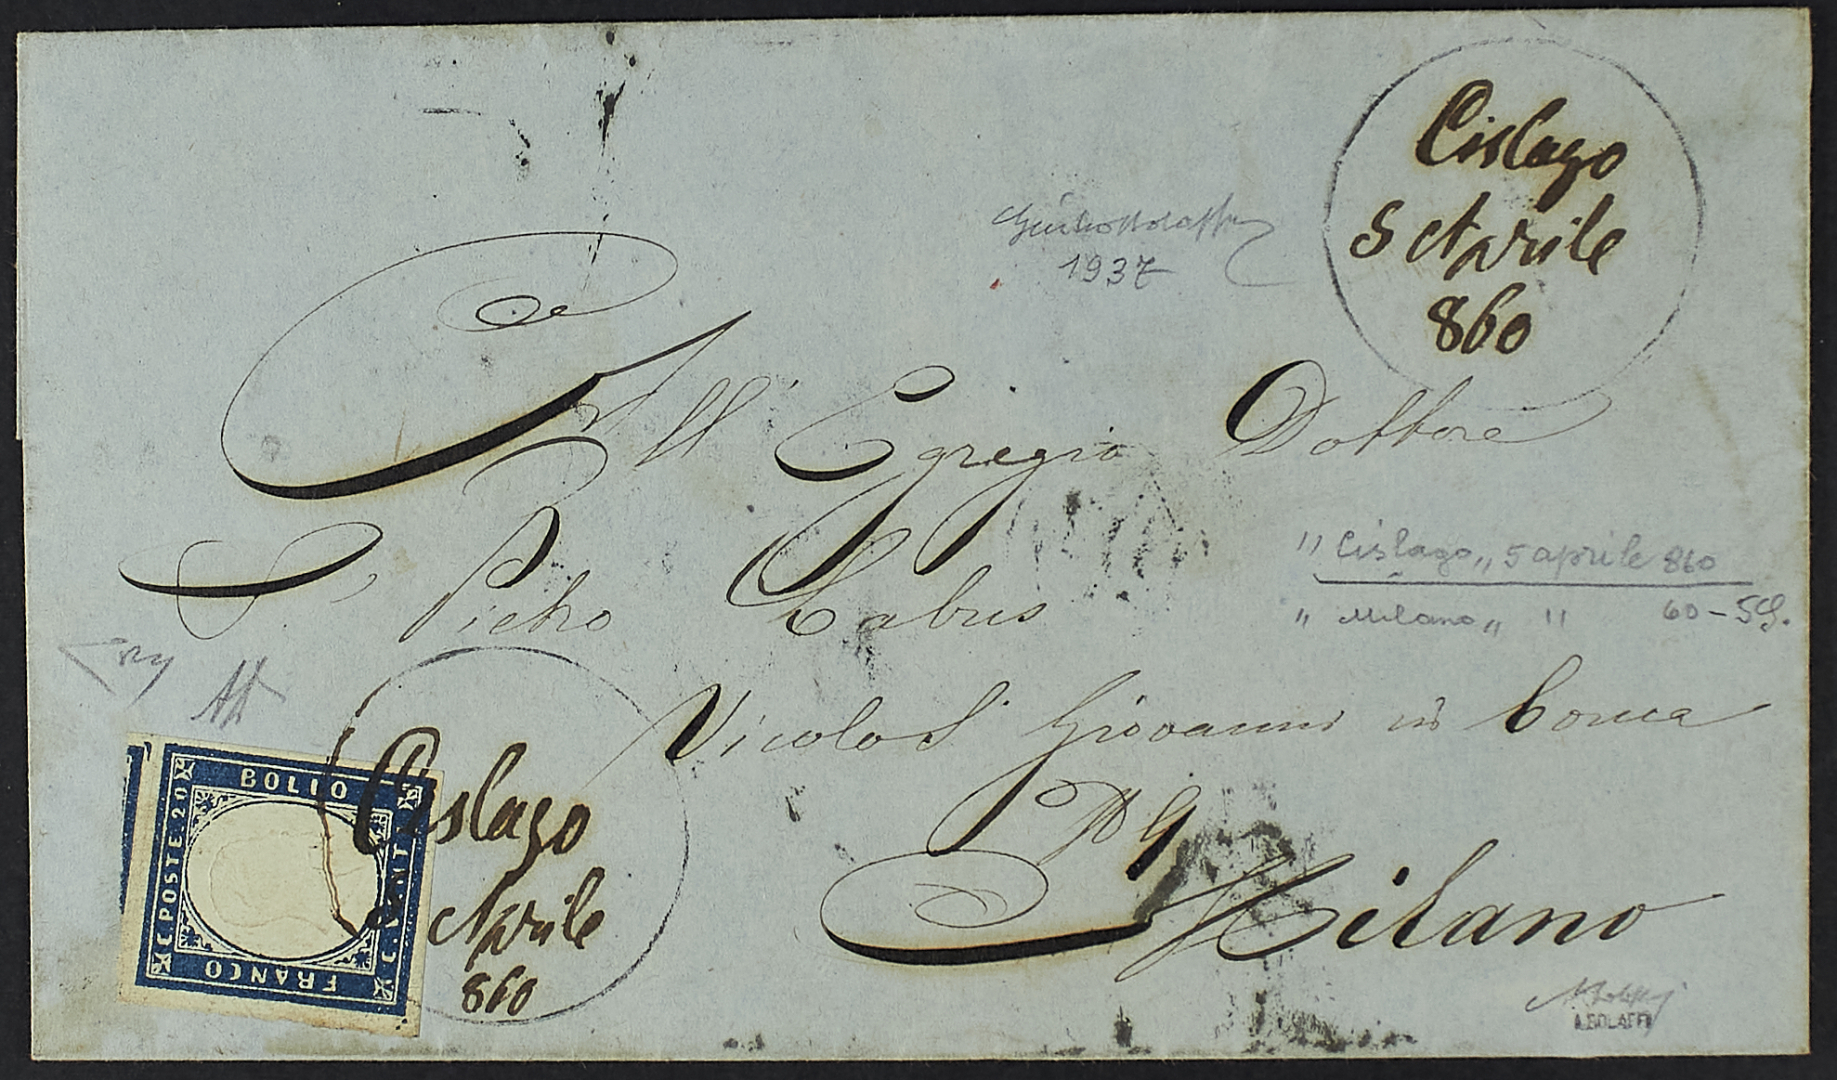 Cislago
5 Aprile
860
1937
All' Egregio Dottore
S. Pietro Labus
" Cislago " 5 aprile 860
" Milano " " 60 - 59.
Vicolo S. Giovanni in Conca
N° 9
Milano
BOLLO
C. POSTE 20
C. VENTI
FRANCO
Cislago
Aprile
860
A. BOLAFFI